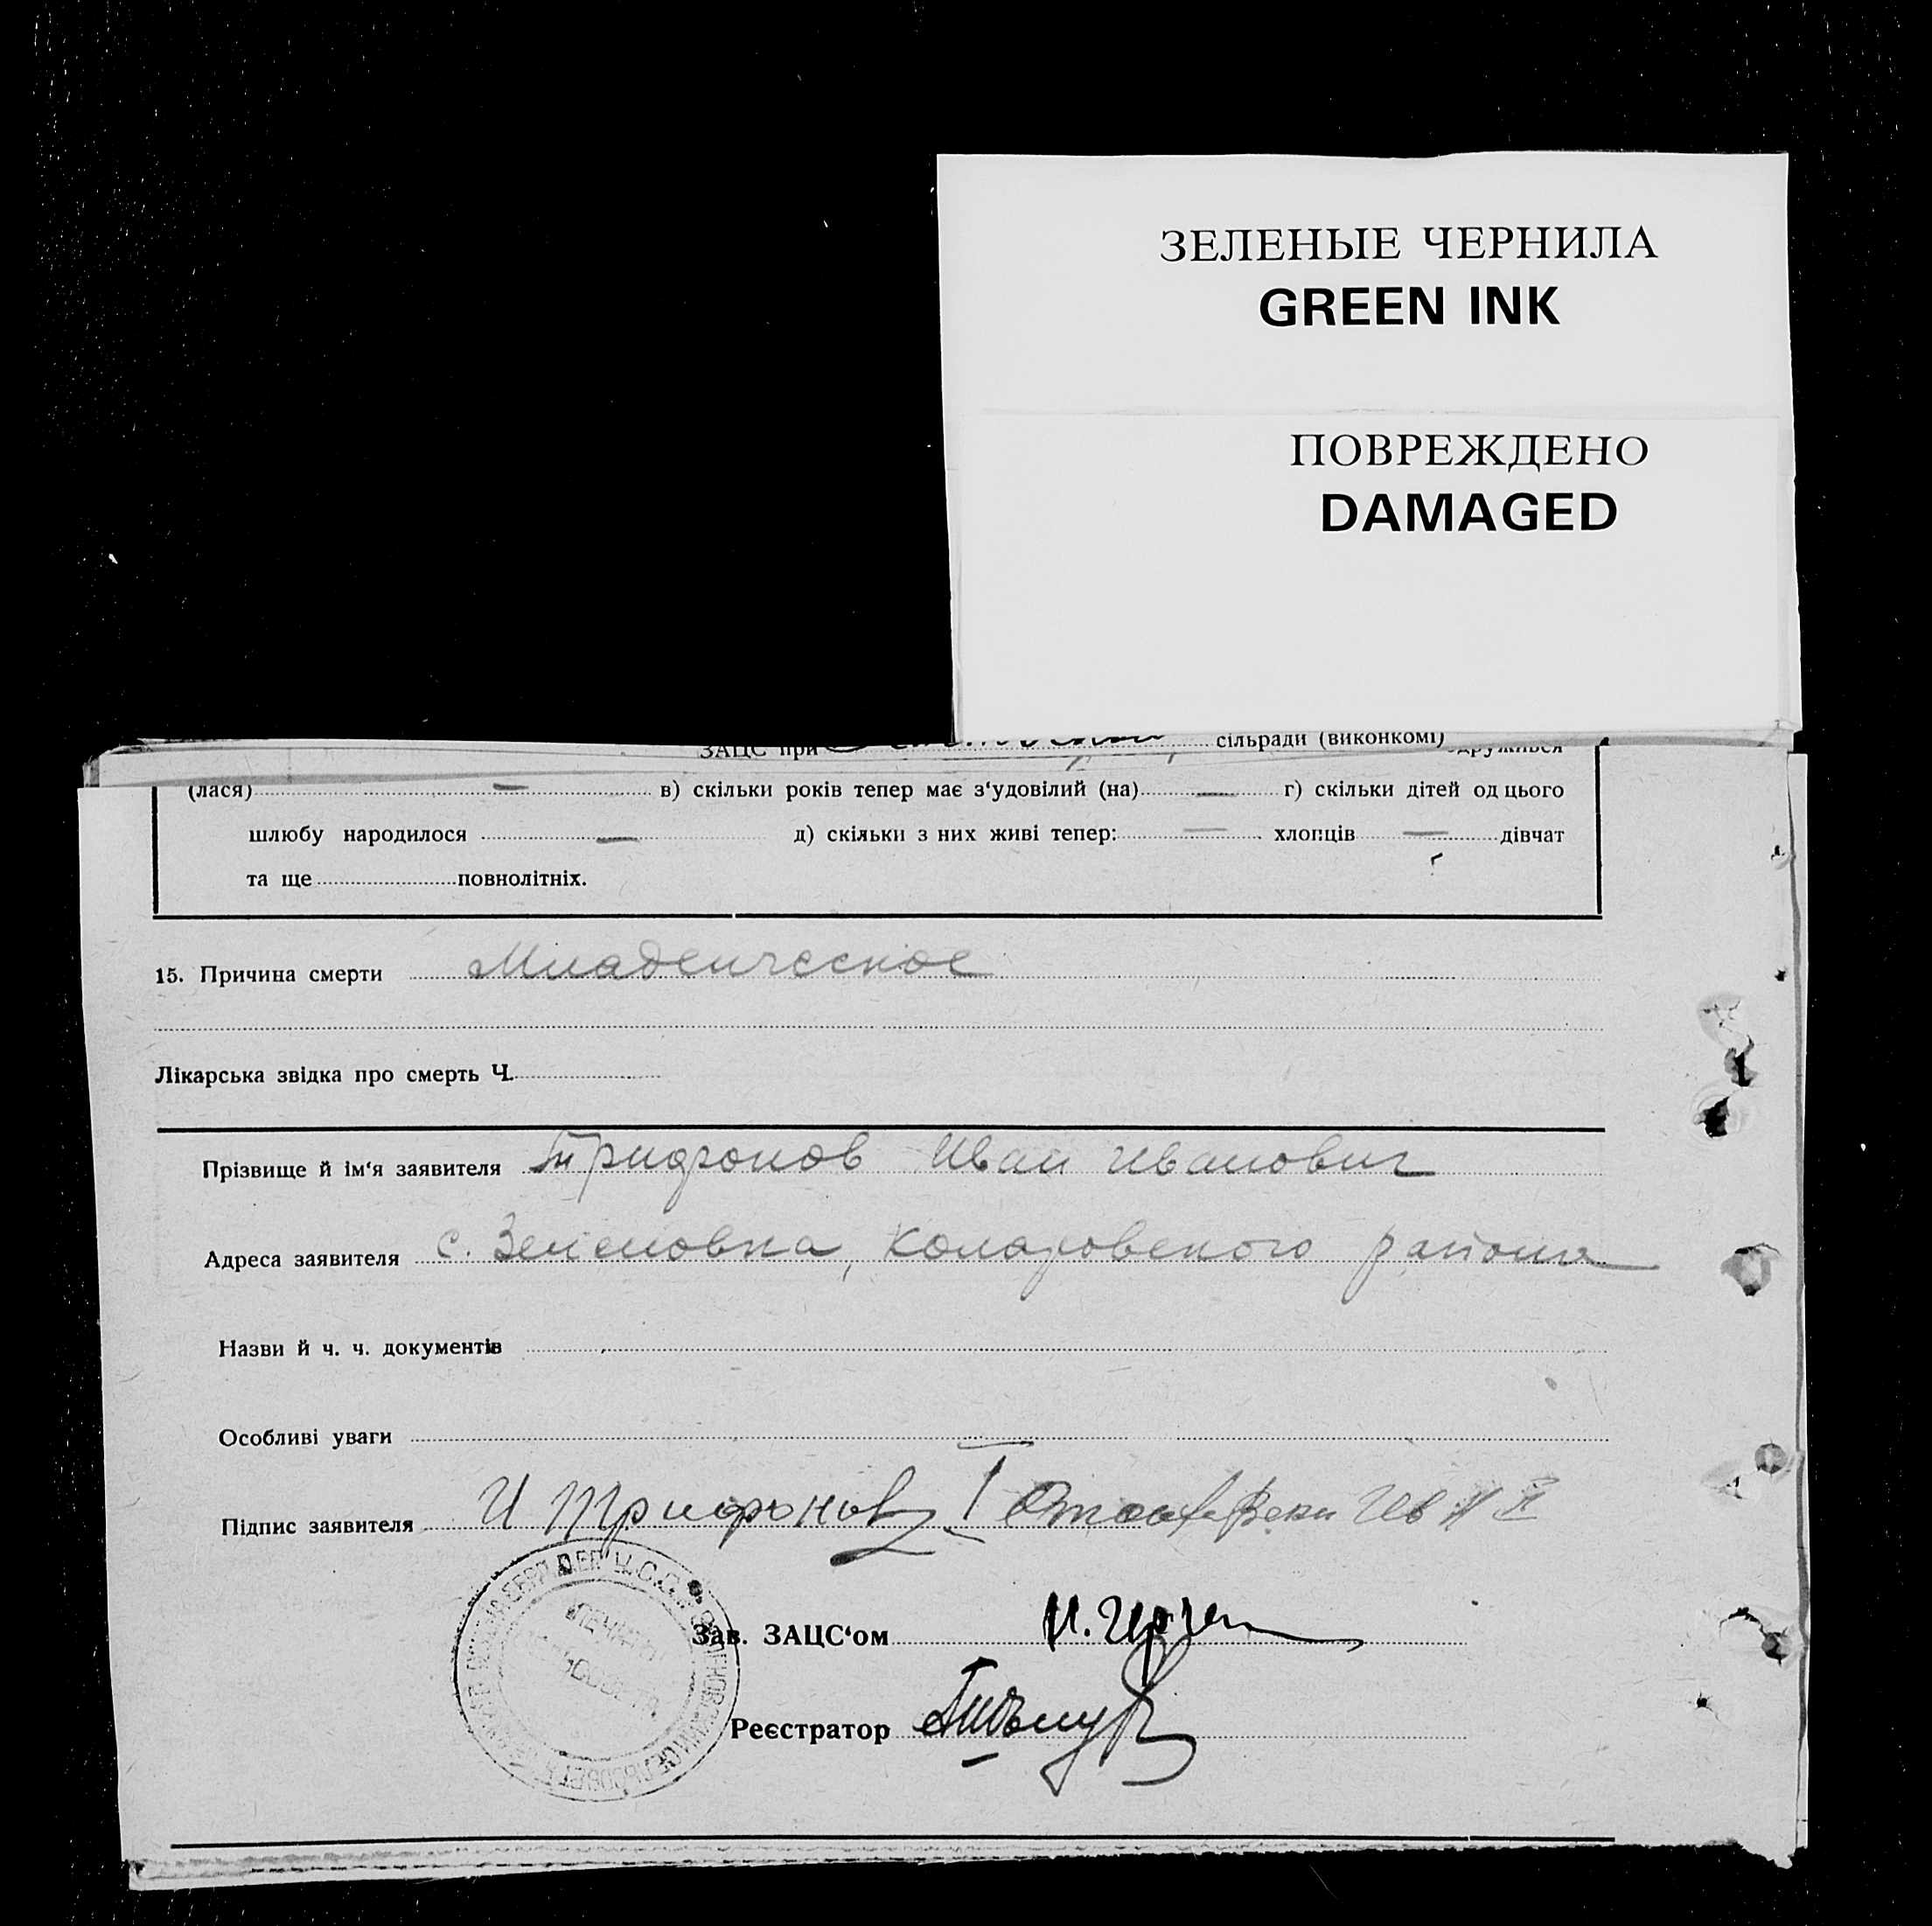 ЗЕЛЕНЫЕ ЧЕРНИЛА
GREEN INK
ПОВРЕЖДЕНО
DAMAGED
ЗАЦС при сільради (виконкомі) одружився
(лася) — в) скільки років тепер має з‘удовілий (на) — г) скільки дітей од цього
шлюбу народилося — д) скільки з них живі тепер: — хлопців — дівчат
та ще повнолітніх.
15. Причина смерти Младенческое
Лікарська звідка про смерть Ч.
Прізвище й ім‘я заявителя Трифонов Иван Иванович
Адреса заявителя с. Зеленовка, Коларовского района
Назви й ч. ч. документів
Особливі уваги
Підпис заявителя И Трифонов
Зав. ЗАЦС‘ом
Реєстратор